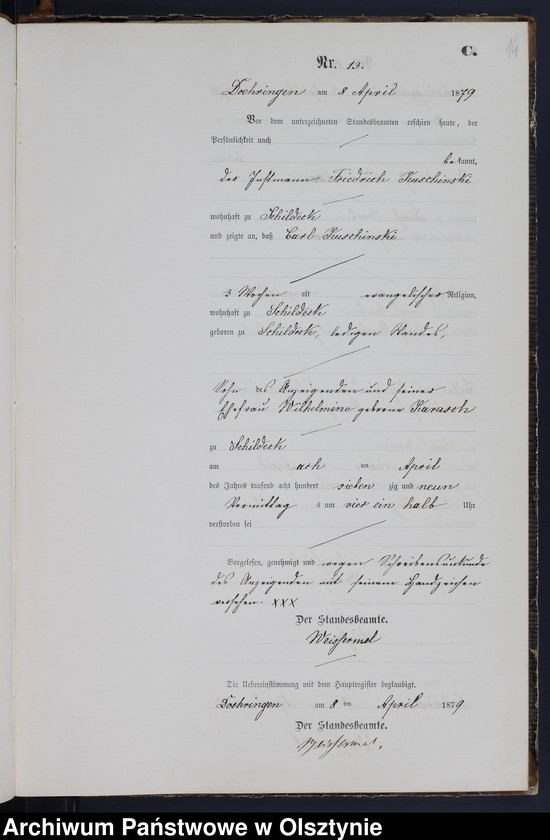 14
C.
Nr. 13.
Doehringen am 8 April 1879
Vor dem unterzeichneten Standesbeamten erschien heute, der
Persönlichkeit nach
bekannt,
der Instmann Friedrich Kuschinski
wohnhaft zu Schildeck
und zeigte an, daß Carl Kuschinski
3 Wochen alt evangelischer Religion,
wohnhaft zu Schildeck
geboren zu Schildeck, ledigen Standes,
Sohn des Anzeigenden und seiner
Ehefrau Wilhelmine geborene Karasch
zu Schildeck
am ach ten April
des Jahres tausend acht hundert sieben zig und neun
Vormittag s um vier ein halb Uhr
verstorben sei
Vorgelesen, genehmigt und wegen Schreibensunkunde
des Anzeigenden mit seinem Handzeichen
versehen. XXX
Der Standesbeamte.
Weissermel
Die Uebereinstimmung mit dem Hauptregister beglaubigt.
Doehringen am 8 ten April 1879
Der Standesbeamte.
Weissermel.
Archiwum Państwowe w Olsztynie